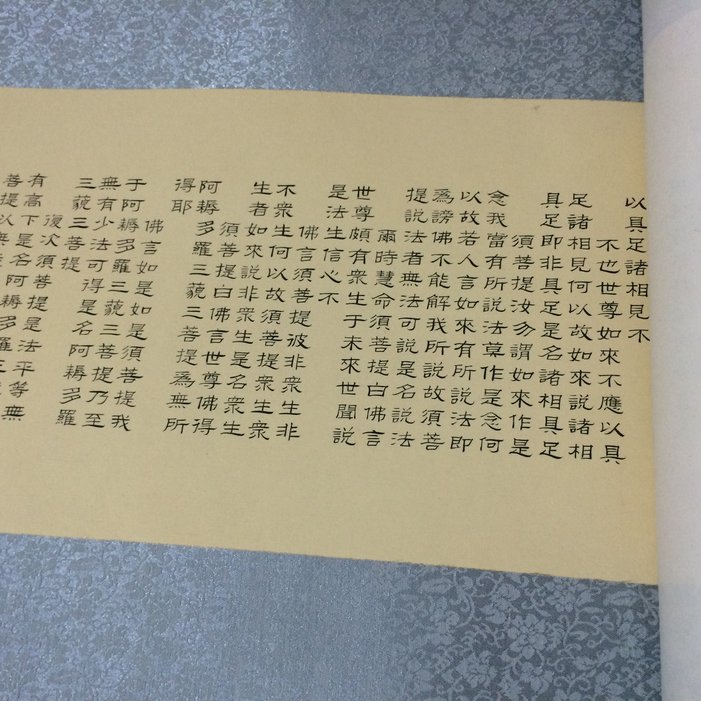 以具足諸相見不
不也世尊如來不應以具
足諸相見何以故如來説諸相
具足即非具足是名諸相具足
須菩提汝勿謂如來作是
念我當有所説法莫作是念何
以故若人言如來有所説法即
爲謗佛不能解我所説故須菩
提説法者無法可説是名説法
爾時慧命須菩提白佛言
世尊頗有衆生于未來世聞説
是法生信心不
佛言須菩提彼非衆生非
不衆生何以故須菩提衆生衆
生者如來説非衆生是名衆生
須菩提白佛言世尊佛得
阿耨多羅三藐三菩提爲無所
得耶
佛言如是如是須菩提我
于阿耨多羅三藐三菩提乃至
無有少法可得是名阿耨多羅
三藐三菩提
復次須菩提是法平等無
有高下是名阿耨多羅三
菩提以無